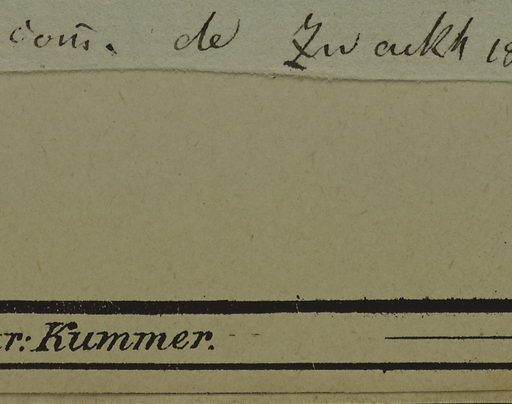 com̄. de Zwackh 18
ar: Kummer.